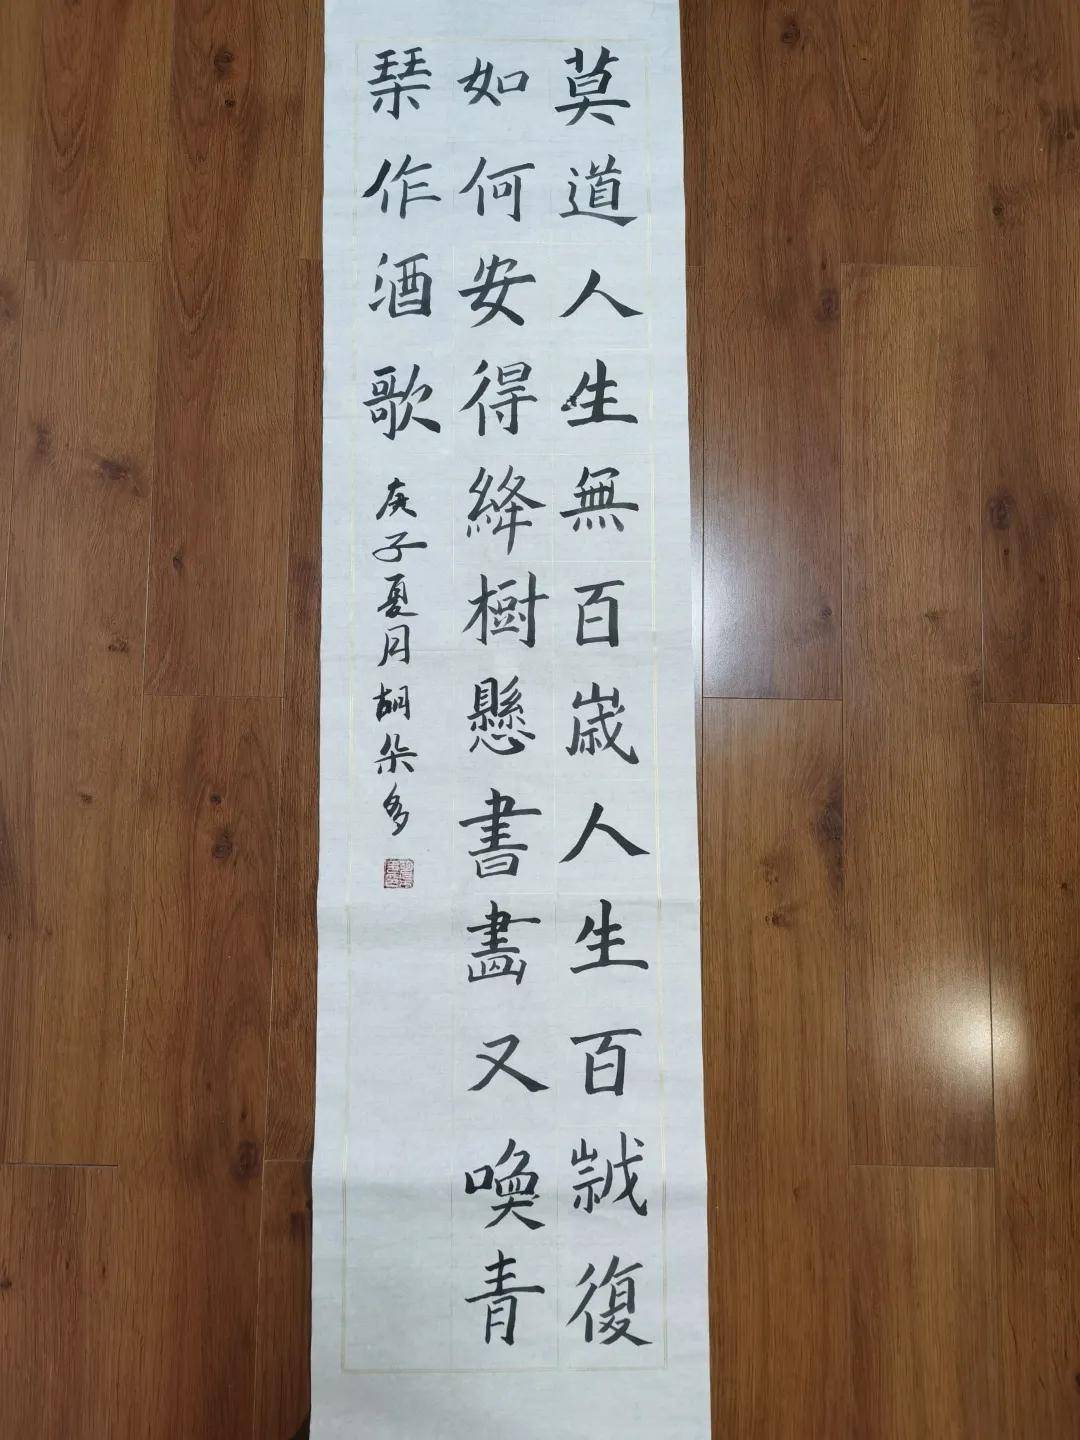 莫道人生無百歲人生百歲復
如何安得絳樹懸書畫又喚青
琹作酒歌
庚子夏月胡朵多